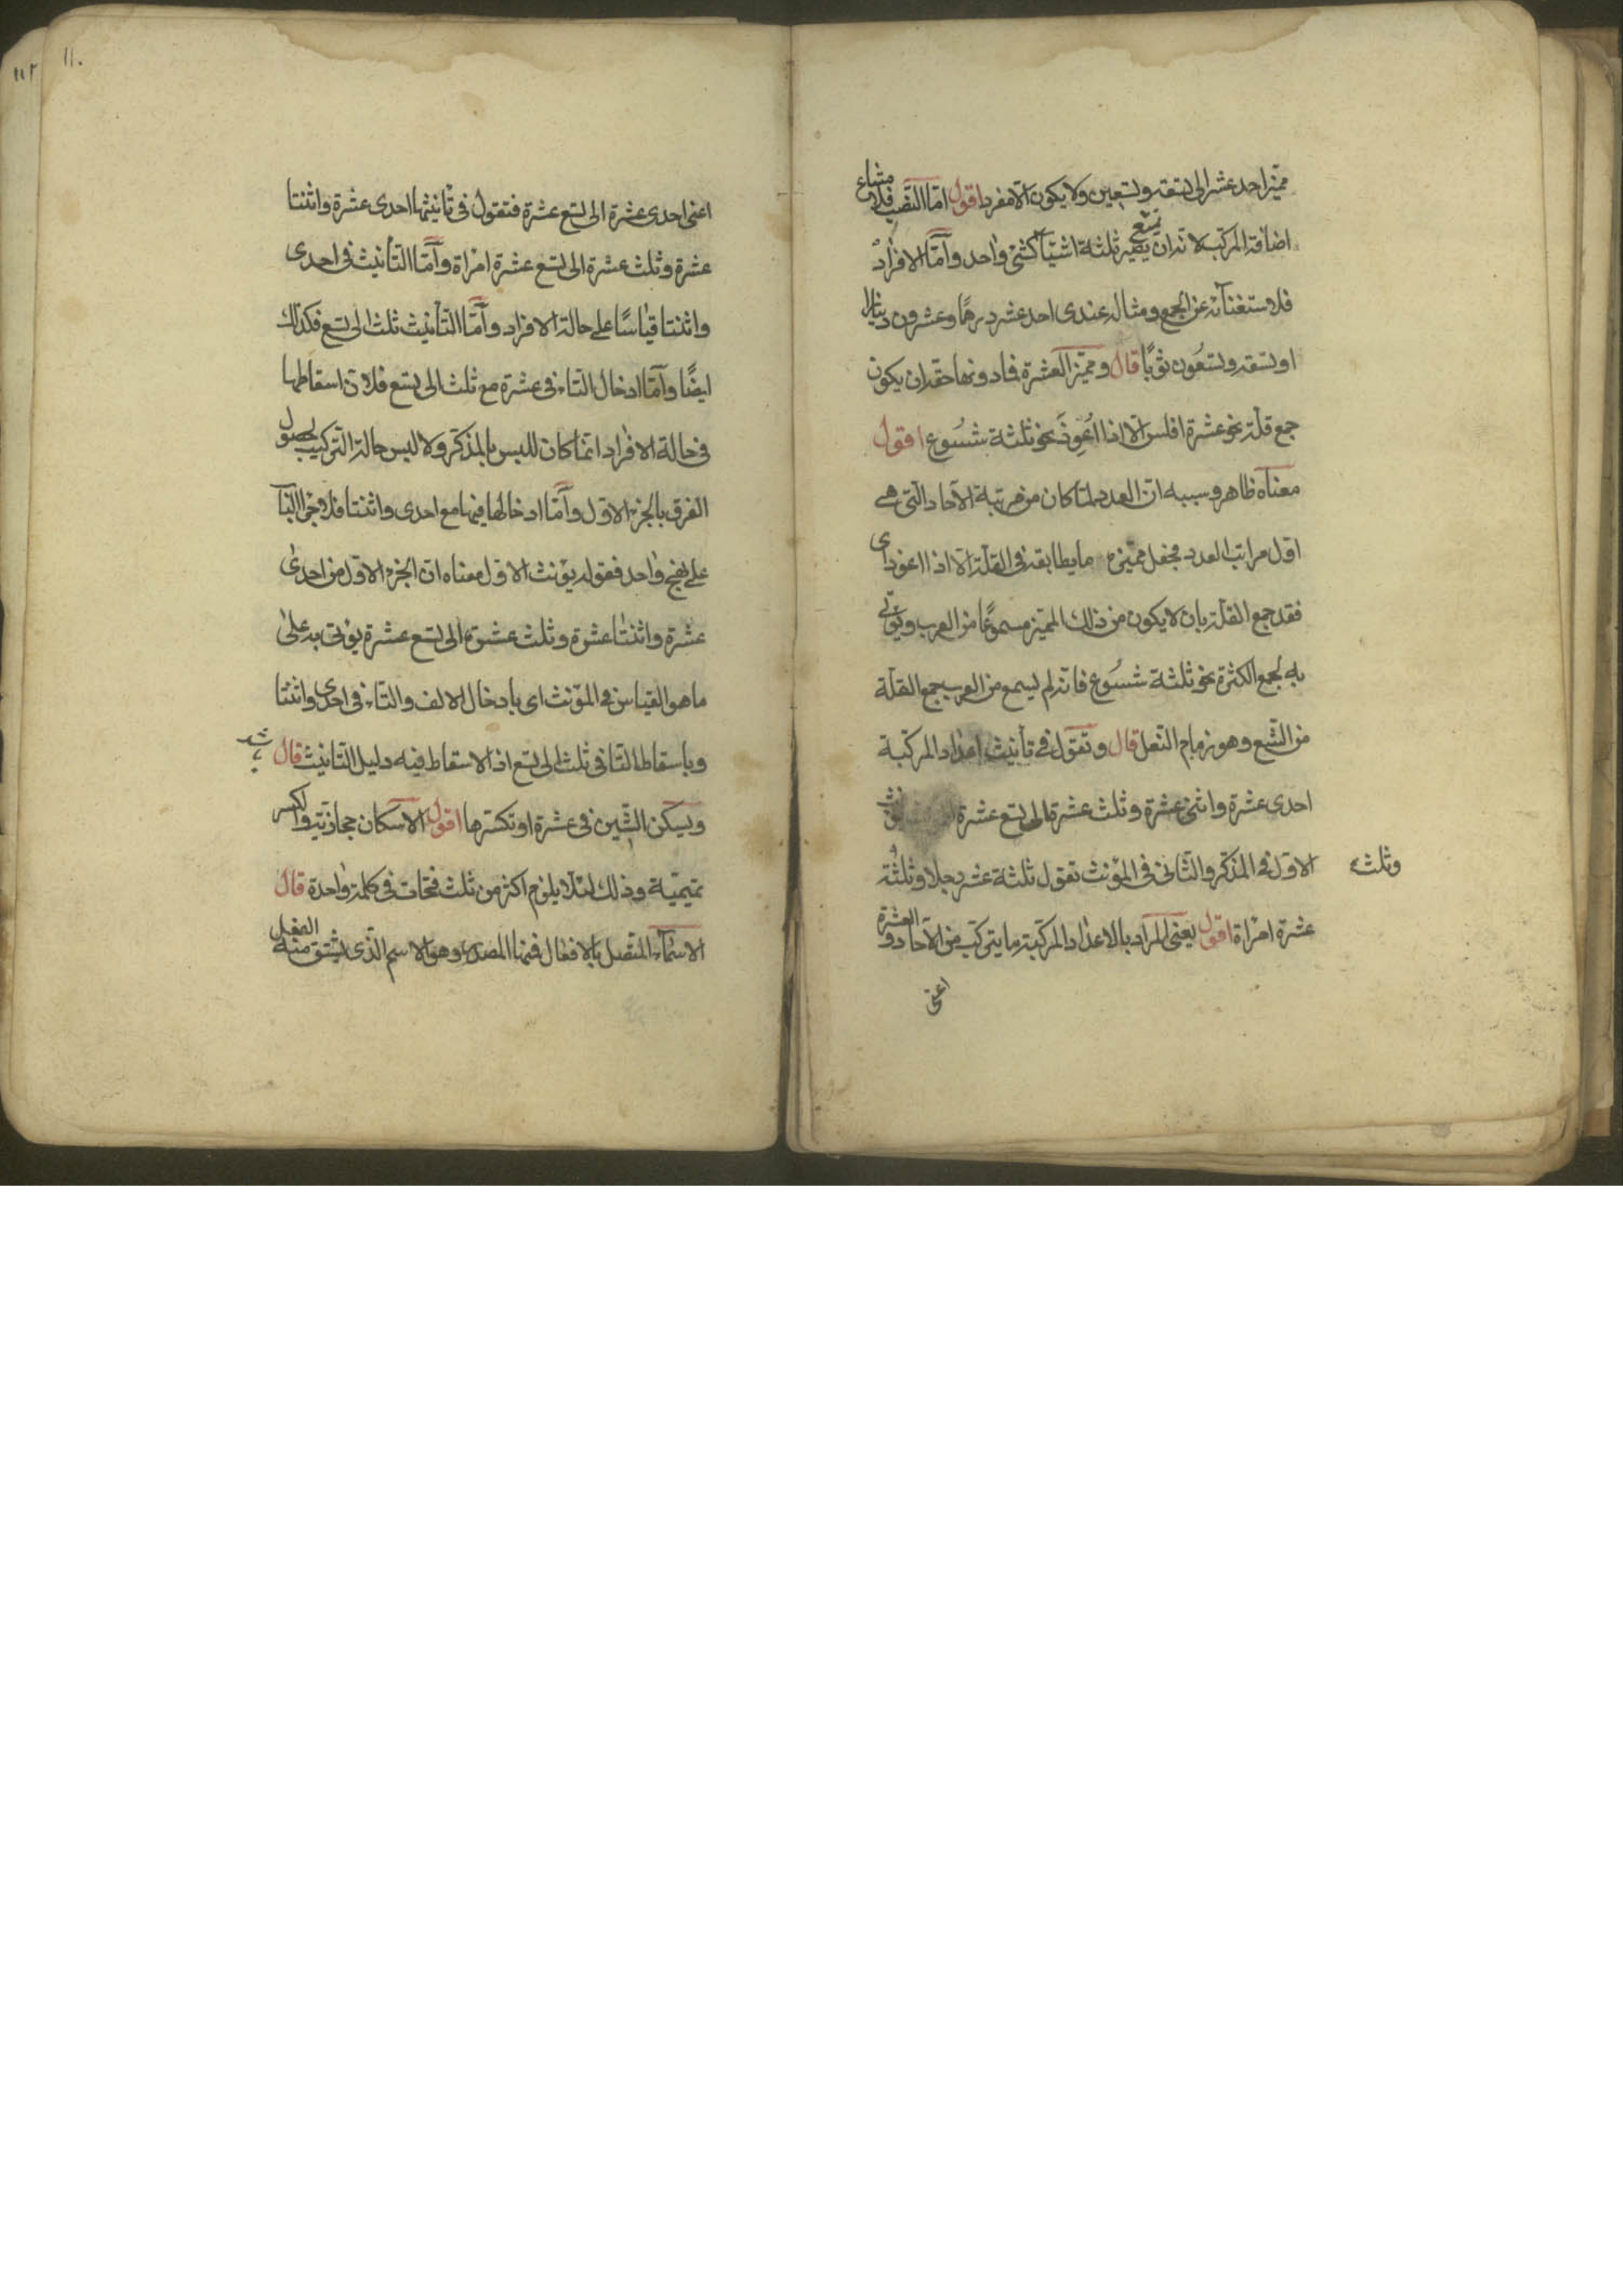 مميز احد عشر الى تسعة وتسعين ولا يكون الا مفردا اقول امّا النّصب فلامتناع
اضافة المركب لانه ان يصير ثلثة اشيآء كشئ واحد وامّا الافراد
فلاستغنائه عن الجمع ومثاله عندى احد عشر درهمًا وعشرون دينارا
او تسعة وتسعون ثوبًا قال ومميّز العشرة فما دونها حقه ان يكون
جمع قلّة نحو عشرة افلس الّا اذا اعوز نحو ثلثة شسوع اقول
معناه ظاهر وسببه انّ العدد لمّا كان من مرتبة الآحاد الّتى هى
اوّل مراتب العدد فجعل مميّزه ما يطابقه فى القلّة الّا اذا اعوز اى
فقد جمع القلّة بان لا يكون من ذلك المميّز مسموعًا من العرب ويؤتى
به بجمع الكثرة نحو ثلثة شسوع فانّه لم يسمع من العرب جمع القلّة
من الشّسع وهو زمام النّعل قال وتقول فى تأنيث اعداد المركّبة
احدى عشرة واثنى عشرة وثلث عشرة الى تسع عشرة
الاوّل فى المذكّر والثّانى فى المؤنّث تقول ثلثة عشر رجلا وثلثة
وثلث
عشرة امرأة اقول يعنى المراد بالاعداد المركّبة ما يتركّب من الآحاد والعشرة
اعنى
١١٠
١١٢
اعنى احدى عشرة الى تسع عشرة فتقول فى تأنيثها احدى عشرة واثنتا
عشرة وثلث عشرة الى تسع عشرة امرأة وامّا التأنيث فى احدى
واثنتا قياسًا على حالة الافراد وامّا التأنيث ثلث الى تسع فكذلك
ايضًا وامّا ادخال التاء فى عشرة مع ثلث الى تسع فلانّ اسقاطها
فى حالة الافراد انّما كان للبس بالمذكّر ولا لبس حالة التركيب لحصول
الفرق بالجزء الاوّل وامّا ادخالها فيها مع احدى واثنتا فلاجراء الباب
على نهج واحد فقوله يؤنث الاوّل معناه انّ الجزء الاوّل من احدى
عشرة واثنتا عشرة وثلث عشرة الى تسع عشرة يؤتى به على
ما هو القياس فى المؤنّث اى بادخال الالف والتاء فى احدى واثنتا
وباسقاط التا فى ثلث الى تسع اذ الاسقاط فيه دليل التانيث قال
ويسكن الشّين فى عشرة او تكسرها اقول الاسكان حجازيّة والكسر
تميميّة وذلك لئلّا يلزم اكثر من ثلث فتحات فى كلمة واحدة قال
الاسماء المتّصل بالافعال فمنها المصدر وهو الاسم الّذى يشتق منه الفعل